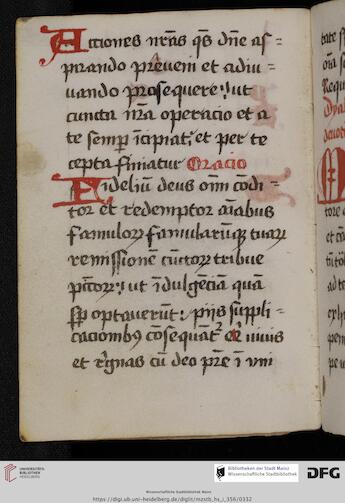 Acciones nr̄as qs̄ dn̄e as⸗
pirando preveni et adiu⸗
uando prosequere: ut
cuncta nr̄a operacio et a
te semp̄ īcipiat: et per te
cepta finiatur Oracio
Fidelium deus om̄ cōdi⸗
tor et redemptor aīabus
famulorꝝ famularūqꝫ tuarꝝ
remissionē cūctorꝝ tribue
pc̄torꝝ: ut īdulgēciā quā
sp̄ optaverūt: piis suppli⸗
cacionibꝫ cōsequāt᷑ Qui vivis
et regnas cū deo pr̄e ī vni
UNIVERSITÄTS-
BIBLIOTHEK
HEIDELBERG
Bibliotheken der Stadt Mainz
Wissenschaftliche Stadtbibliothek
DFG
Wissenschaftliche Stadtbibliothek Mainz
https://digi.ub.uni-heidelberg.de/diglit/mzstb_hs_i_356/0332